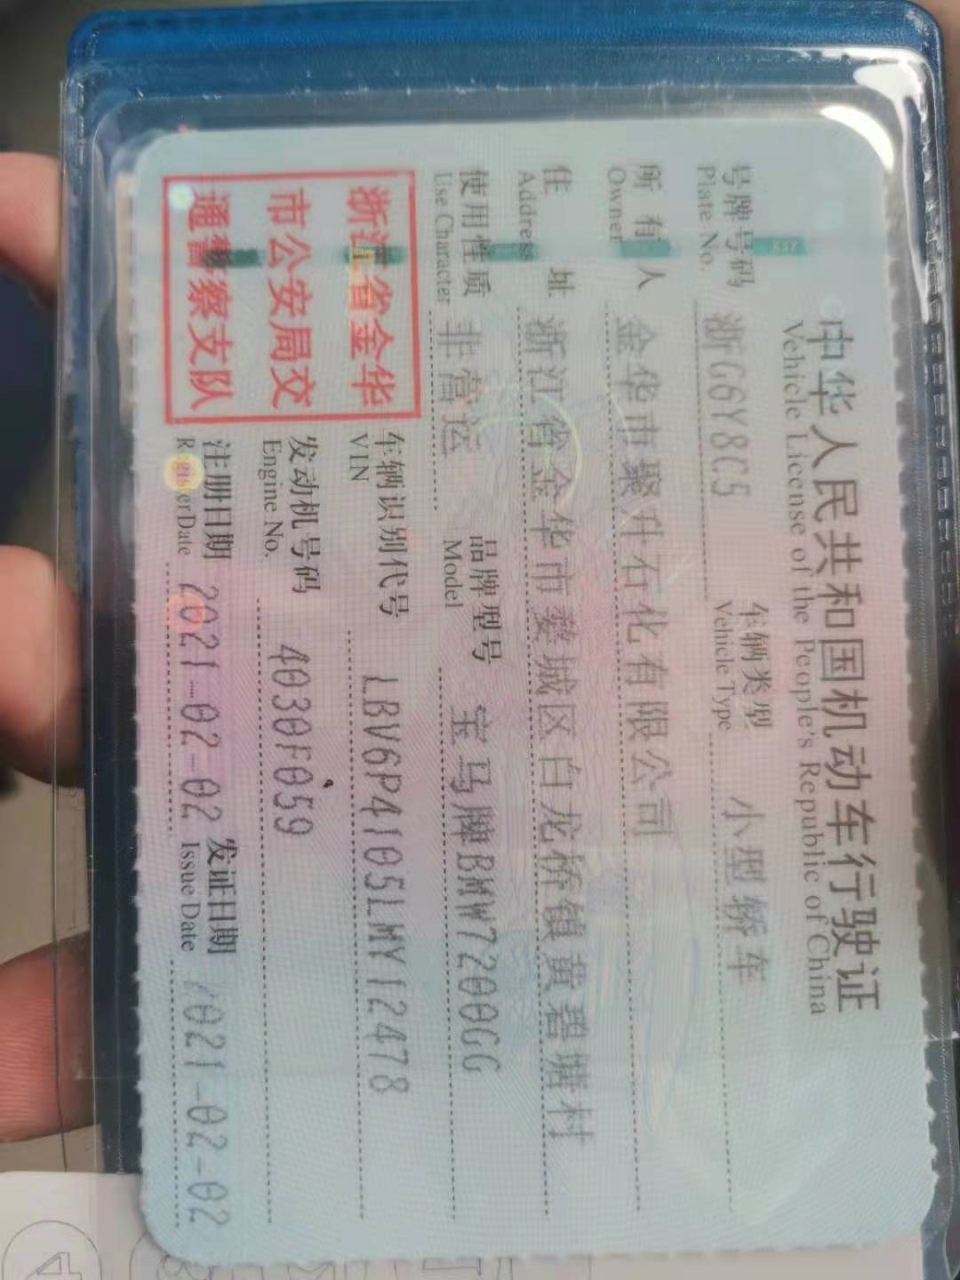 中华人民共和国机动车行驶证
Vehicle License of the People's Republic of China
号牌号码 浙G6Y8C5 车辆类型 小型轿车
Plate No. Vehicle Type
所有人 金华市聚升石化有限公司
Owner
住址 浙江省金华市婺城区白龙桥镇黄碧塘村
Address
使用性质 非营运 品牌型号 宝马牌BMW7200GG
Use Character Model
浙江省金华
市公安局交
通警察支队
车辆识别代号 LBV6P4105LMY12478
VIN
发动机号码 4030F059
Engine No.
注册日期 2021-02-02 发证日期 2021-02-02
Register Date Issue Date
4